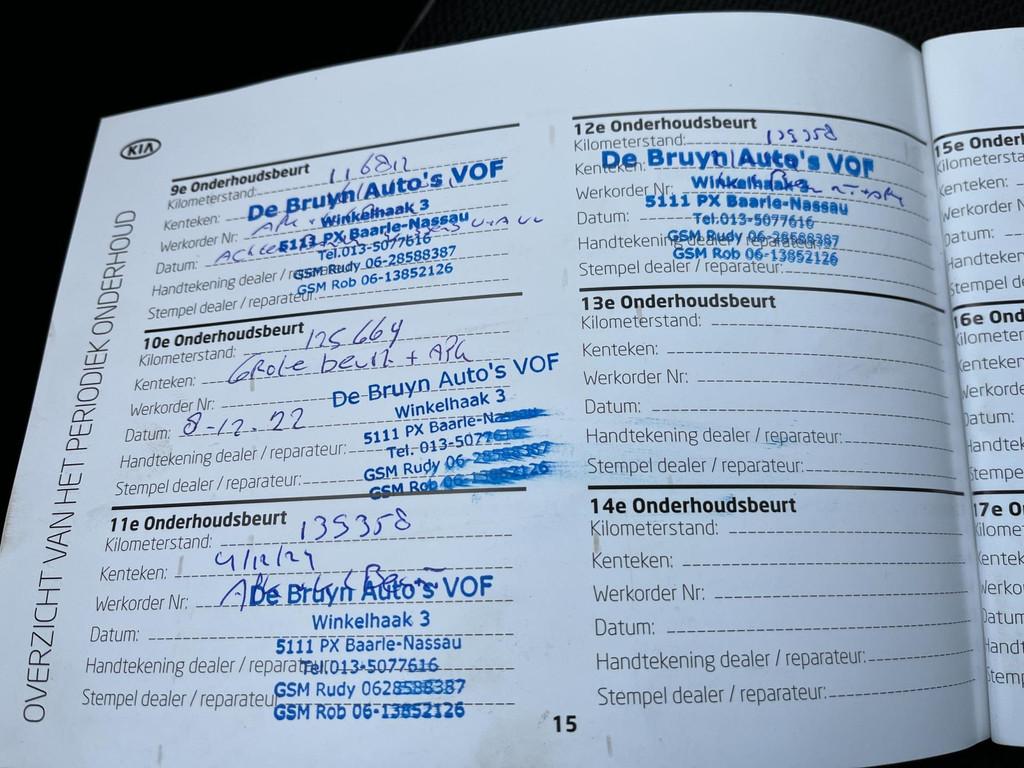 OVERZICHT VAN HET PERIODIEK ONDERHOUD
KIA
9e Onderhoudsbeurt
Kilometerstand: 116812
Kenteken:
De Bruyn Auto's VOF
Werkorder Nr:
Winkelhaak 3
Datum:
5111 PX Baarle-Nassau
Tel.013-5077616
Handtekening dealer / reparateur:
GSM Rudy 06-28588387
Stempel dealer / reparateur:
GSM Rob 06-13852126
10e Onderhoudsbeurt
Kilometerstand: 125664
Kenteken: Grote beurt + APK
Werkorder Nr:
De Bruyn Auto's VOF
Datum: 8-12-22
Winkelhaak 3
Handtekening dealer / reparateur:
5111 PX Baarle-Nassau
Tel. 013-5077616
Stempel dealer / reparateur:
GSM Rudy 06-28588387
GSM Rob 06-13852126
11e Onderhoudsbeurt
Kilometerstand: 135358
Kenteken: 4/12/24
Werkorder Nr:
De Bruyn Auto's VOF
Datum:
Winkelhaak 3
5111 PX Baarle-Nassau
Handtekening dealer / reparateur:
Tel.013-5077616
Stempel dealer / reparateur:
GSM Rudy 0628588387
GSM Rob 06-13852126
12e Onderhoudsbeurt
Kilometerstand: 135358
Kenteken:
De Bruyn Auto's VOF
Werkorder Nr:
Winkelhaak 3
5111 PX Baarle-Nassau
Datum:
Tel.013-5077616
Handtekening dealer / reparateur:
GSM Rudy 06-28588387
GSM Rob 06-13852126
Stempel dealer / reparateur:
13e Onderhoudsbeurt
Kilometerstand:
Kenteken:
Werkorder Nr:
Datum:
Handtekening dealer / reparateur:
Stempel dealer / reparateur:
14e Onderhoudsbeurt
Kilometerstand:
Kenteken:
Werkorder Nr:
Datum:
Handtekening dealer / reparateur:
Stempel dealer / reparateur:
15
15e Onderh
Kilometersta
Kenteken:
Werkorder N
Datum:
Handteken
Stempel de
16e Ond
Kilometer
Kenteken
Werkorde
Datum:
Handtek
Stempe
17e O